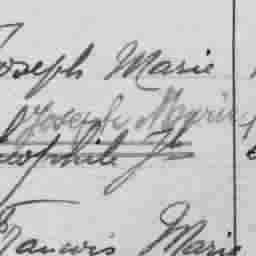 Joseph Marie
Joseph Marie
Theophile Jh
Francois Marie